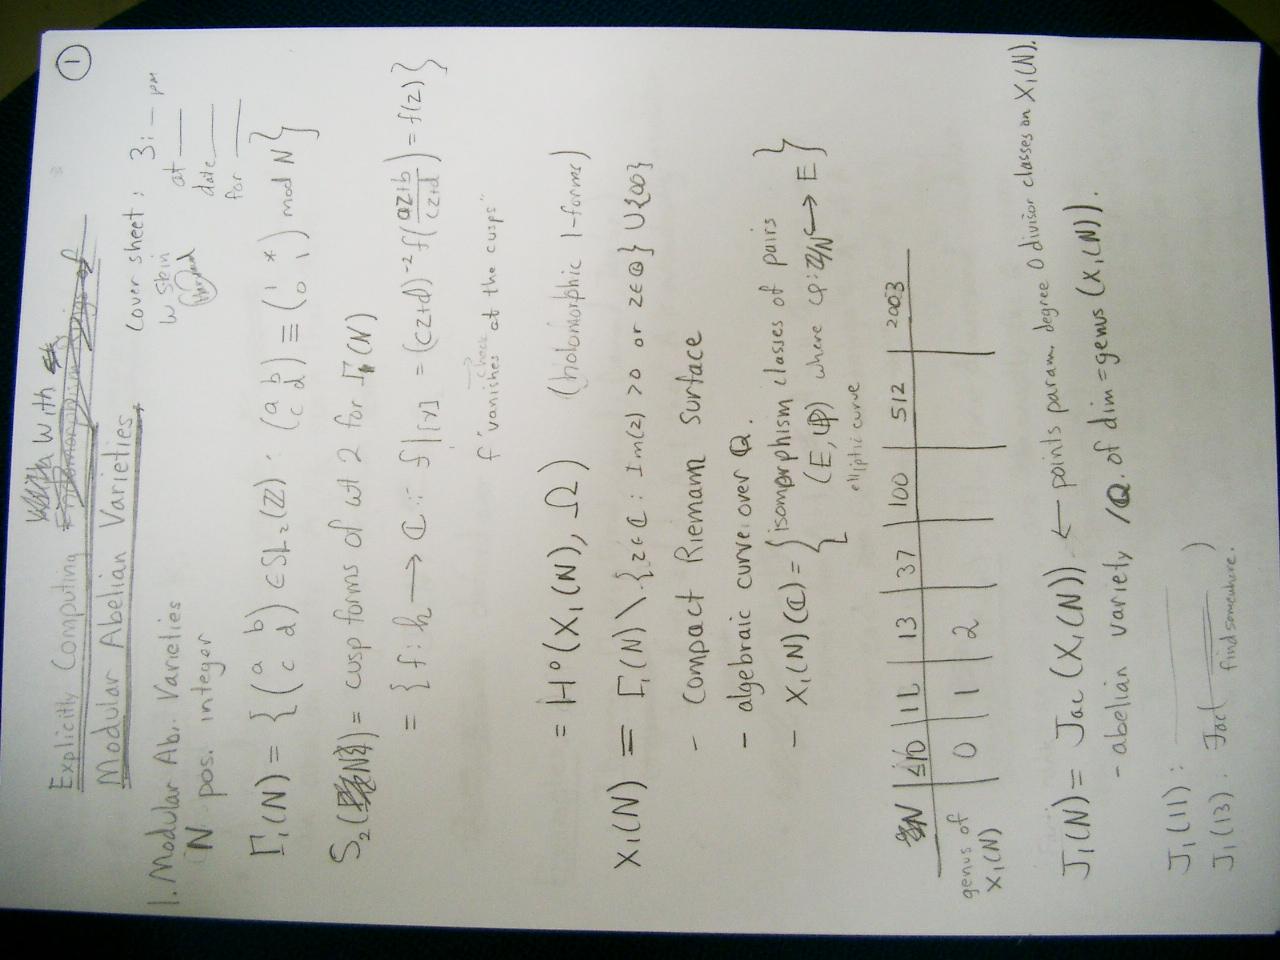 ①
Explicitly Computing With
Modular Abelian Varieties
Cover sheet: 3:— pm
W Stein at
Harvard date
for
1. Modular Ab. Varieties
N pos. integer
Γ₁(N) = { (a b / c d) ∈ SL₂(ℤ) : (a b / c d) ≡ (1 * / 0 1) mod N }
S₂( ) = cusp forms of wt 2 for Γ₁(N)
= { f: h → ℂ : f|[γ] = (cz+d)⁻² f((az+b)/(cz+d)) = f(z) }
check
f "vanishes at the cusps"
= H⁰(X₁(N), Ω) (holomorphic 1-forms)
X₁(N) = Γ₁(N) \ {z ∈ ℂ : Im(z) > 0 or z ∈ ℚ} ∪ {∞}
- Compact Riemann Surface
- algebraic curve over ℚ.
- X₁(N)(ℂ) = { isomorphism classes of pairs
(E, φ) where φ: ℤ/N ↪ E }
elliptic curve
N | ≤10 | 11 | 13 | 37 | 100 | 512 | 2003
genus of X₁(N) | 0 | 1 | 2
J₁(N) = Jac(X₁(N)) ← points param. degree 0 divisor classes on X₁(N).
- abelian variety /ℚ of dim = genus(X₁(N)).
J₁(11):
J₁(13): Jac( )
find somewhere.